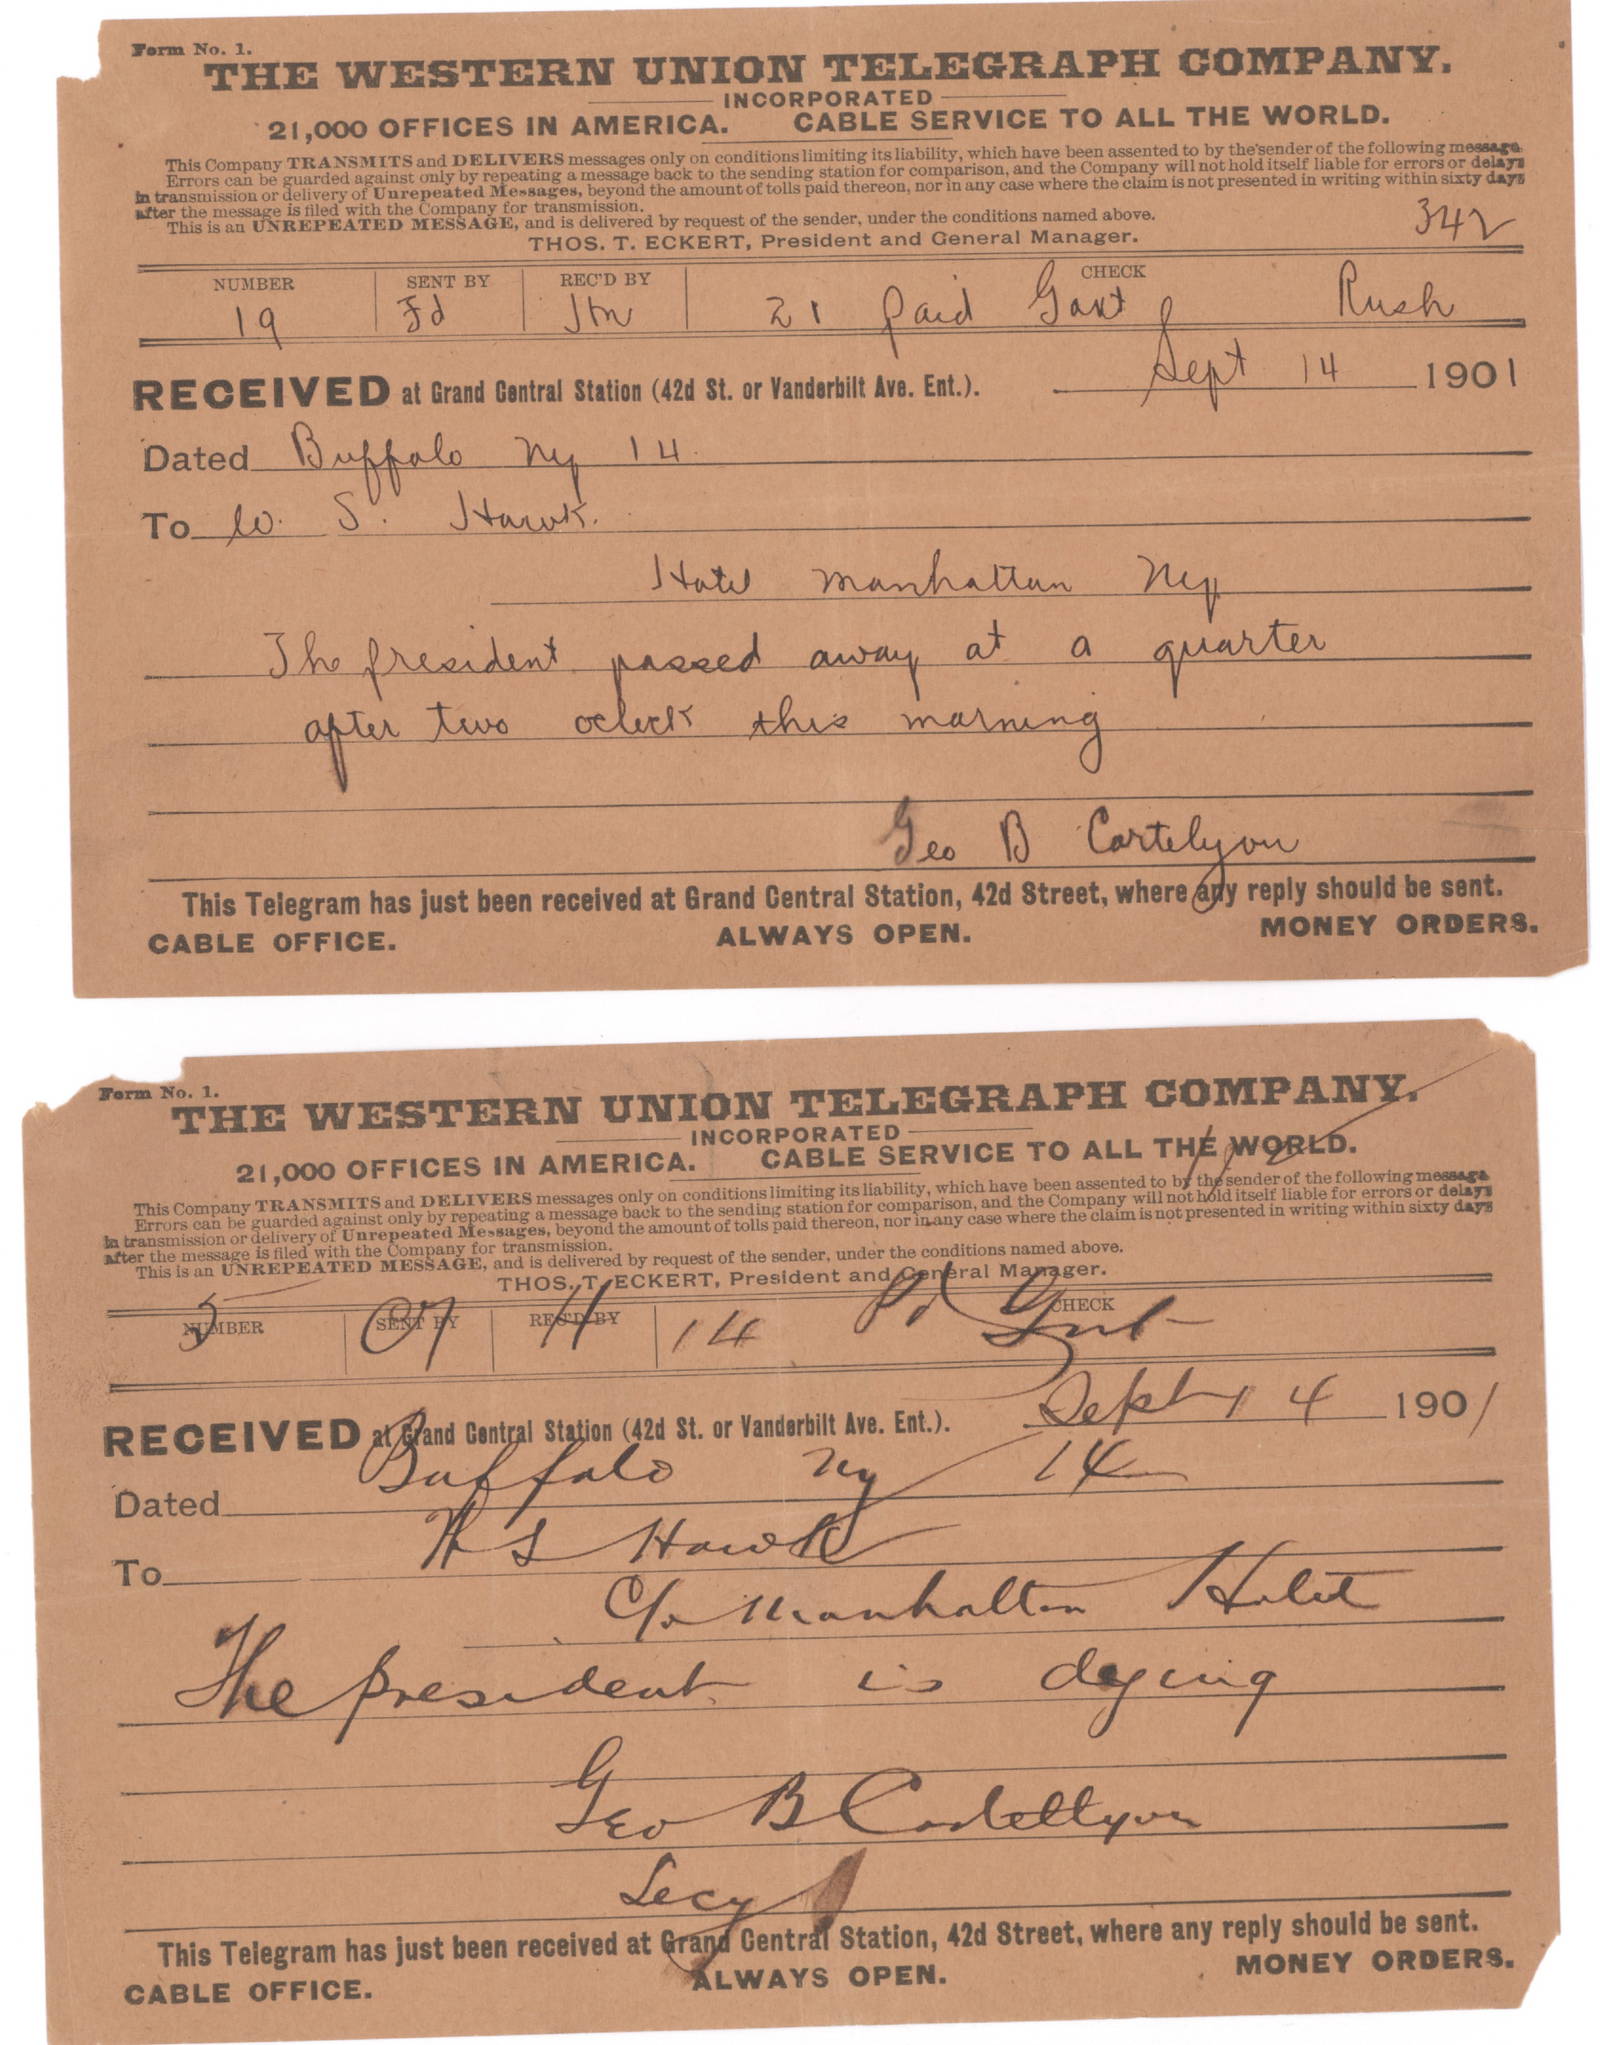 Form No. 1.
THE WESTERN UNION TELEGRAPH COMPANY.
INCORPORATED
21,000 OFFICES IN AMERICA. CABLE SERVICE TO ALL THE WORLD.
This Company TRANSMITS and DELIVERS messages only on conditions limiting its liability, which have been assented to by the sender of the following message.
Errors can be guarded against only by repeating a message back to the sending station for comparison, and the Company will not hold itself liable for errors or delays
in transmission or delivery of Unrepeated Messages, beyond the amount of tolls paid thereon, nor in any case where the claim is not presented in writing within sixty days
after the message is filed with the Company for transmission.
This is an UNREPEATED MESSAGE, and is delivered by request of the sender, under the conditions named above.
THOS. T. ECKERT, President and General Manager.
342
NUMBER SENT BY REC'D BY CHECK
19 Fd 21 Paid Govt Rush
RECEIVED at Grand Central Station (42d St. or Vanderbilt Ave. Ent.). Sept 14 1901
Dated Buffalo Ny 14
To W. S. Hawk.
Hotel Manhattan Ny
The president passed away at a quarter
after two oclock this morning
Geo B Cortelyou
This Telegram has just been received at Grand Central Station, 42d Street, where any reply should be sent.
CABLE OFFICE. ALWAYS OPEN. MONEY ORDERS.
Form No. 1.
THE WESTERN UNION TELEGRAPH COMPANY.
INCORPORATED
21,000 OFFICES IN AMERICA. CABLE SERVICE TO ALL THE WORLD.
This Company TRANSMITS and DELIVERS messages only on conditions limiting its liability, which have been assented to by the sender of the following message.
Errors can be guarded against only by repeating a message back to the sending station for comparison, and the Company will not hold itself liable for errors or delays
in transmission or delivery of Unrepeated Messages, beyond the amount of tolls paid thereon, nor in any case where the claim is not presented in writing within sixty days
after the message is filed with the Company for transmission.
This is an UNREPEATED MESSAGE, and is delivered by request of the sender, under the conditions named above.
THOS. T. ECKERT, President and General Manager.
NUMBER SENT BY REC'D BY CHECK
5 H 14 Pd Govt
RECEIVED at Grand Central Station (42d St. or Vanderbilt Ave. Ent.). Sept 14 1901
Dated Buffalo Ny 14
To W S Hawk
C/o Manhattan Hotel
The president is dying
Geo B Cortellyou
Secy
This Telegram has just been received at Grand Central Station, 42d Street, where any reply should be sent.
CABLE OFFICE. ALWAYS OPEN. MONEY ORDERS.